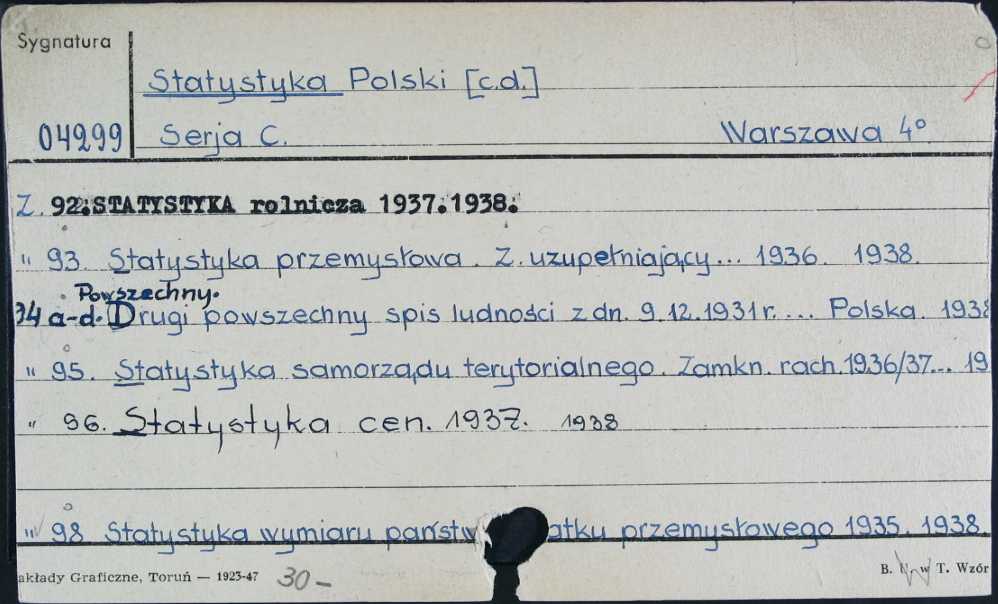 Sygnatura
Statystyka Polski [c.d.]
04299 Serja C. Warszawa 4°
Z. 92: STATYSTYKA rolnicza 1937. 1938.
" 93. Statystyka przemysłowa. Z. uzupełniający... 1936. 1938.
Powszechny.
94 a-d. Drugi powszechny spis ludności z dn. 9.12.1931 r. ... Polska. 1938
" 95. Statystyka samorządu terytorialnego. Zamkn. rach. 1936/37... 19
" 96. Statystyka cen. 1937. 1938
" 98 Statystyka wymiaru państw atku przemysłowego 1935. 1938.
akłady Graficzne, Toruń — 1923-47 30 - B. U. w T. Wzór